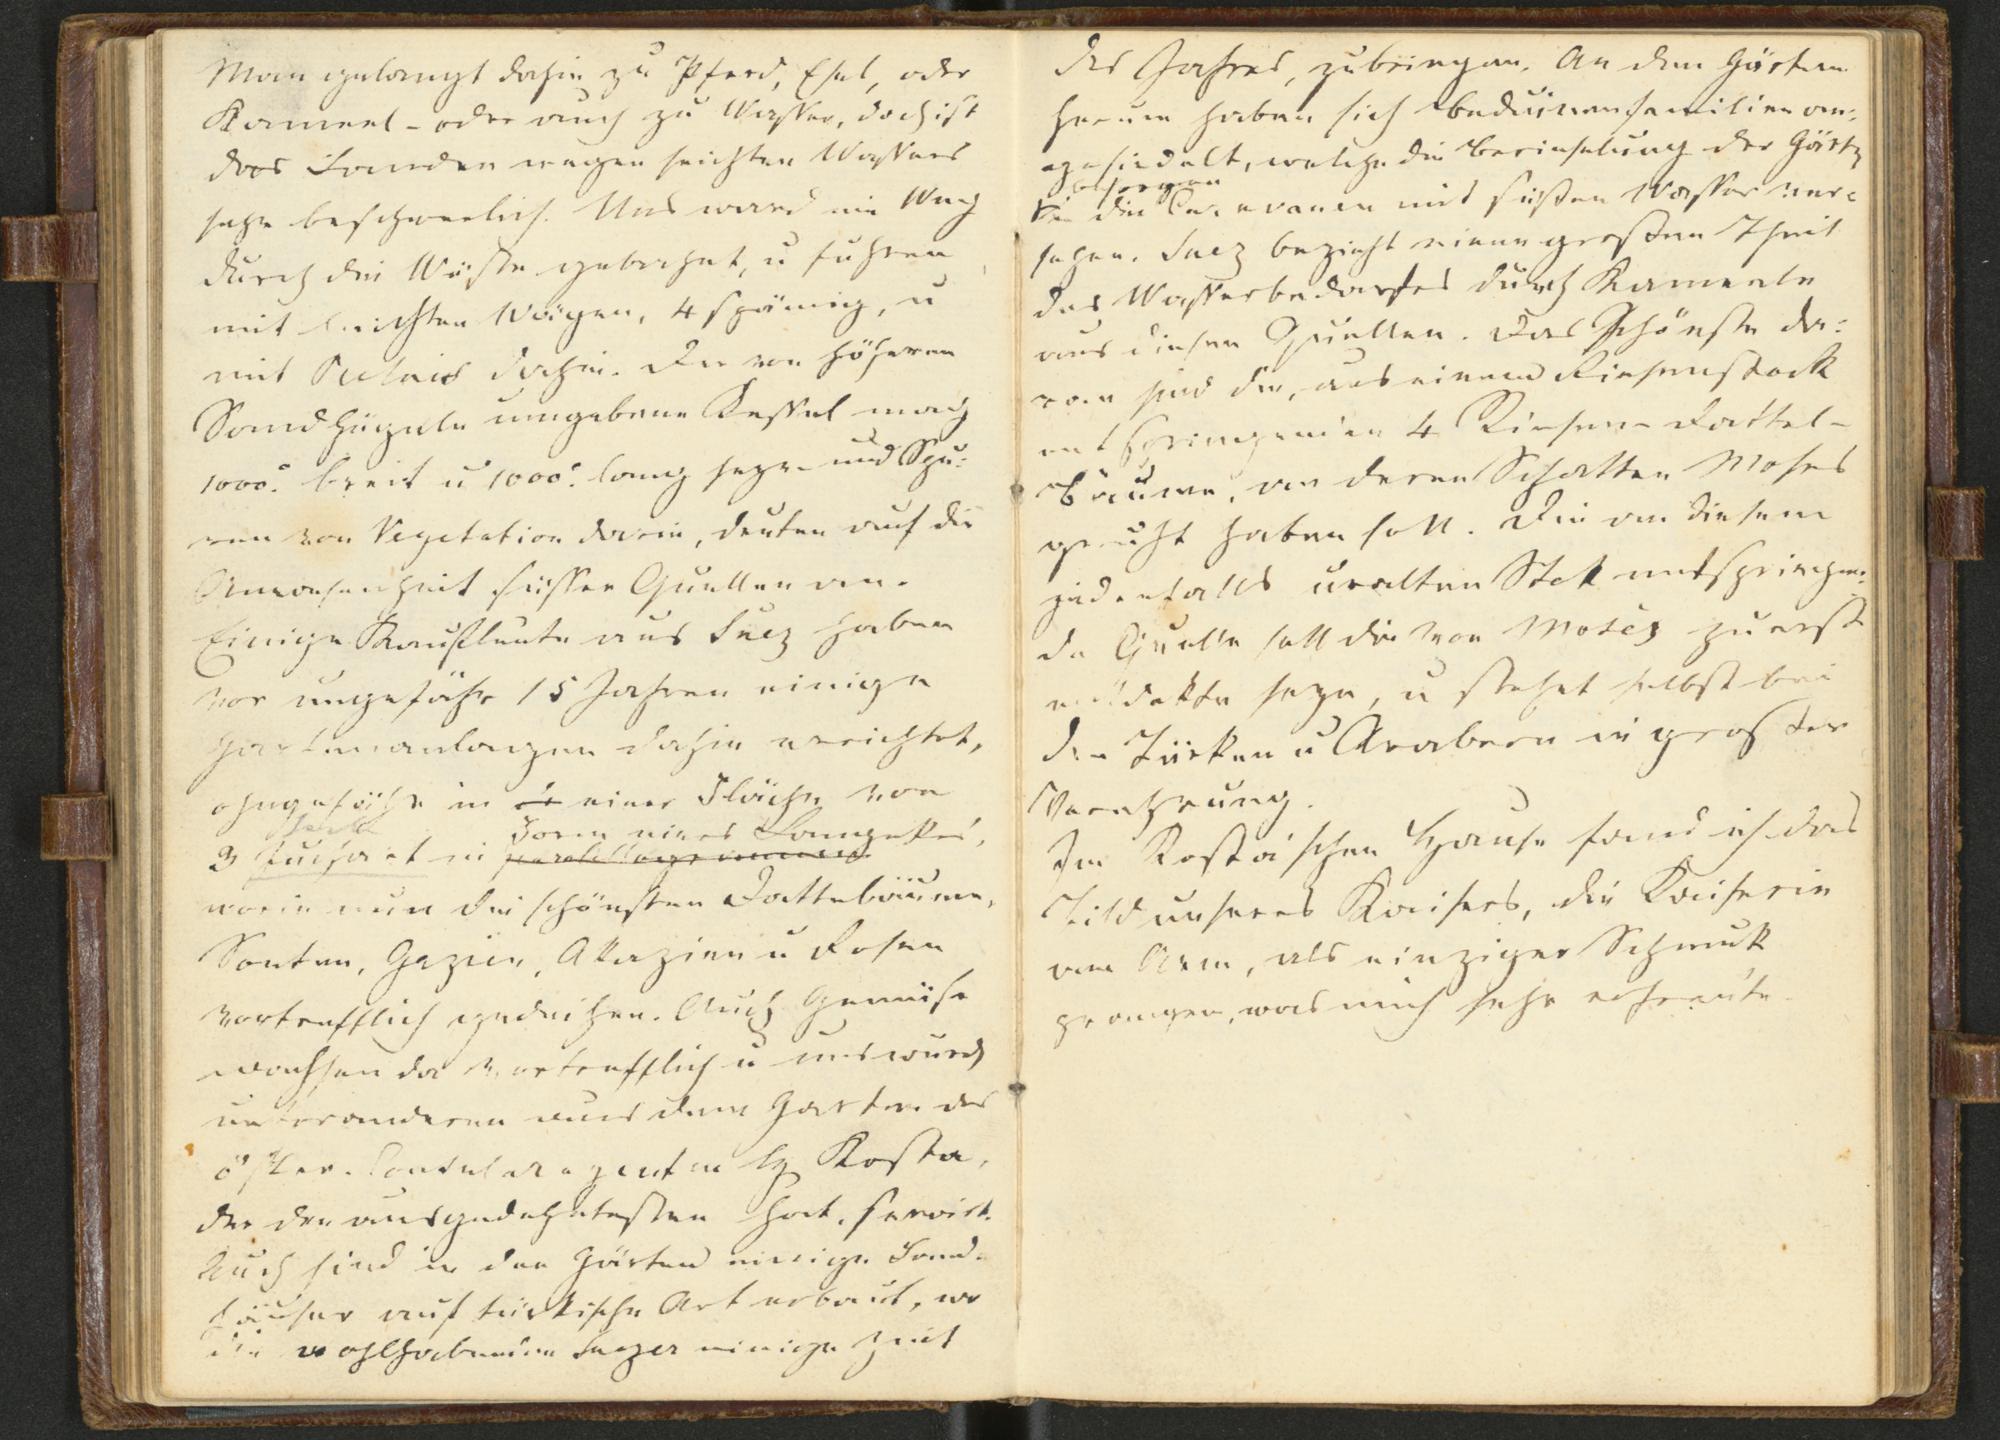 Man gelangt dahin zu Pferd, Esel, oder
Kameel - oder auch zu Wasser, doch ist
das Landen wegen seichten Wassers
sehr beschwerlich. Uns ward ein Weg
durch die Wüste gebahnt, u fuhren
mit leichten Wägen, 4 spännig, u
mit Relais dahin. Der von höheren
Sandhügeln umgebene Kessel mag
1000.° breit u 1000.° lang seyn und Spu:
ren von Vegetation darin, deuten auf die
Anwesenheit süsser Quellen an.
Einige Kaufleute aus Suez haben
vor ungefähr 15 Jahren einige
Gartenanlagen dahin errichtet,
ohngefähr in einer Fläche von
3 Juchart in Form eines Langekes,
worin nun die schönsten Dattelbäume,
Sonten, Gazien, Akazien u Rosen
vortrefflich gedeihen. Auch Gemüse
wachsen da vortrefflich u uns wurd
unteranderen aus dem Garten des
öster. Consularagenten H Kosta,
der den ausgedehntesten hat, servirt.
Auch sind in den Gärten einige Land-
häuser auf türkische Art erbaut, wo
die wohlhabenden Suezer einige Zeit
des Jahres, zubringen. An den Gärten
herum haben sich Beduinenfamilien an:
gesiedelt, welche die Berieselung der Gärten
besorgen
die Caravanen mit süßen Wasser ver:
sehen. Suez bezieht einen großen Theil
des Wasserbedarfes durch Kameele
aus diesen Quellen. Das Schönste da:
von sind die, aus einem Riesenstock
entspringenden 4 Riesen-Dattel-
Bäume, an deren Schatten Moses
geruht haben soll. Die an diesem
jedenfalls uralten Stok entspringen:
de Quelle soll die von Moses zuerst
entdekte seyn, u stehet selbst bei
den Türken u Arabern in großter
Verehrung.
Im Kostaischen Hause fand ich das
Bild unseres Kaisers, die Kaiserin
am Arm, als einziger Schmuk
prangen, was mich sehr erfreute.